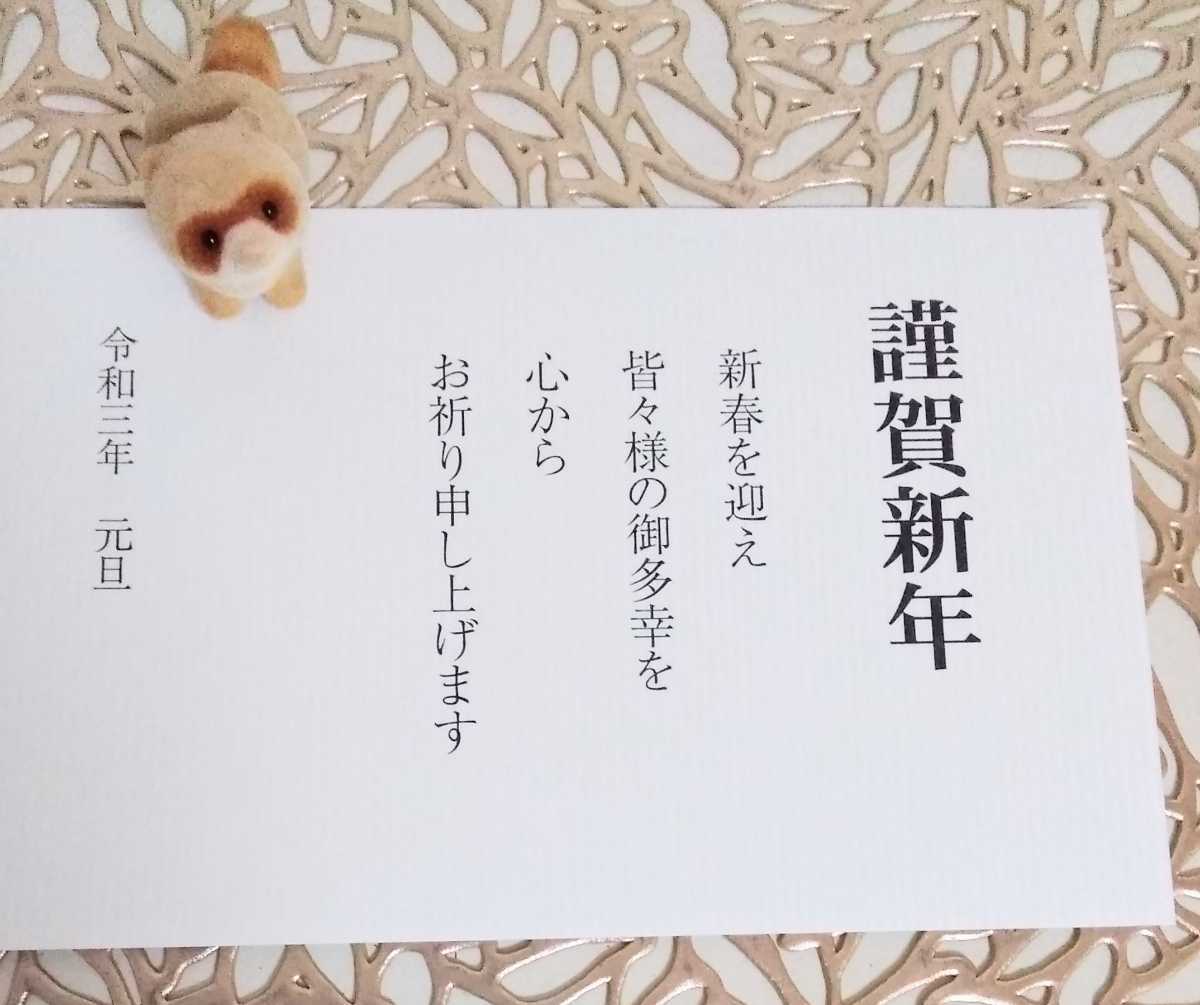 謹賀新年
新春を迎え
皆々様の御多幸を
心から
お祈り申し上げます
令和三年　元旦